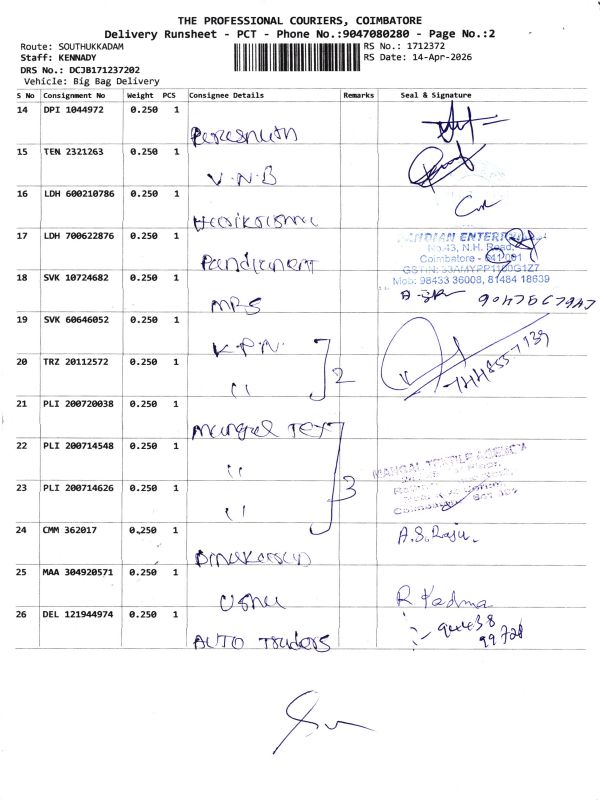 THE PROFESSIONAL COURIERS, COIMBATORE
Delivery Runsheet - PCT - Phone No.:9047080280 - Page No.:2
Route: SOUTHUKKADAM
RS No.: 1712372
Staff: KENNADY
RS Date: 14-Apr-2026
DRS No.: DCJB171237202
Vehicle: Big Bag Delivery
S No Consignment No Weight PCS Consignee Details Remarks Seal & Signature
14 DPI 1044972 0.250 1
15 TEN 2321263 0.250 1
V.N.B
16 LDH 600210786 0.250 1
17 LDH 700622876 0.250 1
PANDIAN ENTERPRISES
No.43, N.H. Road,
Coimbatore - 641 001
Mob: 98433 36008, 81484 18639
18 SVK 10724682 0.250 1
MRS
19 SVK 60646052 0.250 1
K.P.N.
20 TRZ 20112572 0.250 1
" 2
21 PLI 200720038 0.250 1
Mangal TEX
22 PLI 200714548 0.250 1
"
MANGAL TEXTILE AGENCY
23 PLI 200714626 0.250 1
" 3
24 CMM 362017 0.250 1
A.S.Raju.
25 MAA 304920571 0.250 1
Usha
R Padma
26 DEL 121944974 0.250 1
94438
99728
AUTO Traders